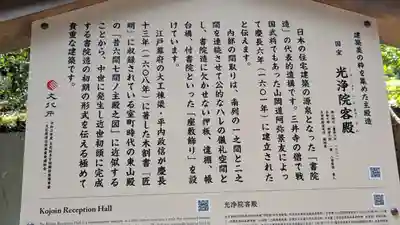 建築美の粋を集めた主殿造
国宝 光浄院客殿
日本の住宅建築の源泉となった「書院
造」の代表的遺構です。三井寺の僧で戦
国武将でもあった山岡道阿弥景友によっ
て慶長六年（一六〇一）に建立された
と伝えます。
内部の間取りは、南列の一之間と二之
間を連続させて公的なハレの儀礼空間と
し、書院造に欠かせない押板、違棚、帳
台構、付書院といった「座敷飾り」を設
けています。
江戸幕府の大工棟梁・平内政信が慶長
十三年（一六〇八）に著した木割書『匠
明』に収録されている室町時代の東山殿
の「昔六間七間ノ主殿之図」に近似する
ことから、中世に発生し近世初頭に完成
する書院造の初期の形式を伝える極めて
貴重な建築です。
三井寺
Kojoin Reception Hall
光浄院客殿